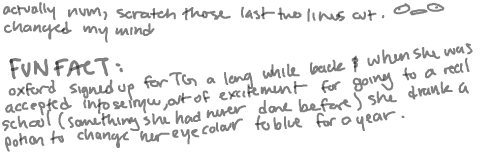 actually num, scratch those last two lines out.
changed my mind
FUN FACT:
oxford signed up for TG a long while back & when she was
accepted into seinyu, out of excitement for going to a real
school (something she had never done before) she drank a
potion to change her eye colour to blue for a year.